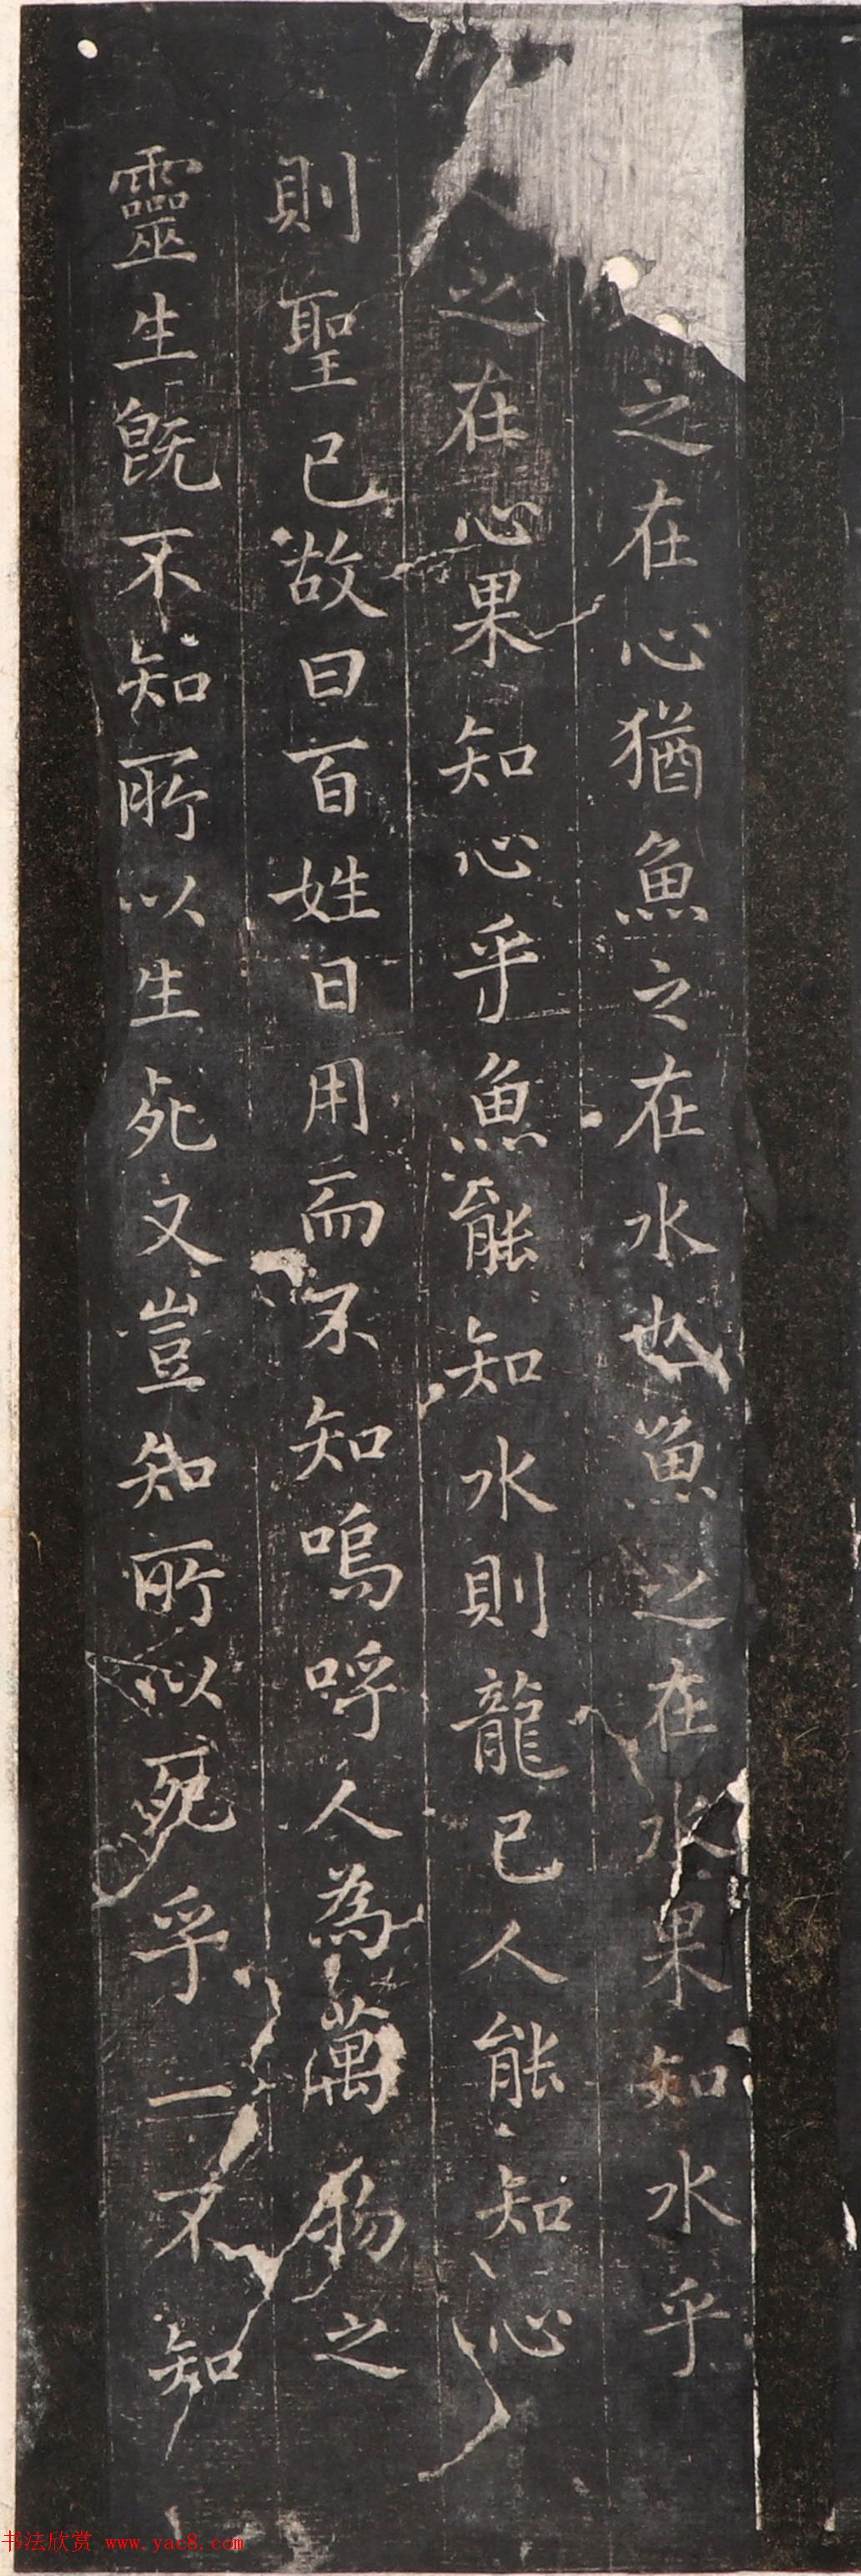 之在心猶魚之在水也魚之在水果知水乎
之在心果知心乎魚能知水則龍已人能知心
則聖已故曰百姓日用而不知嗚呼人為萬物之
靈生既不知所以生死又豈知所以死乎一不知
书法欣赏 www.yac8.com